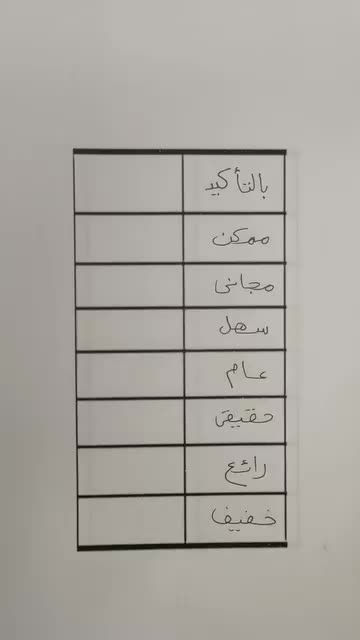 بالتأكيد
ممكن
مجانى
سهل
عام
حقيقى
رائع
خفيف